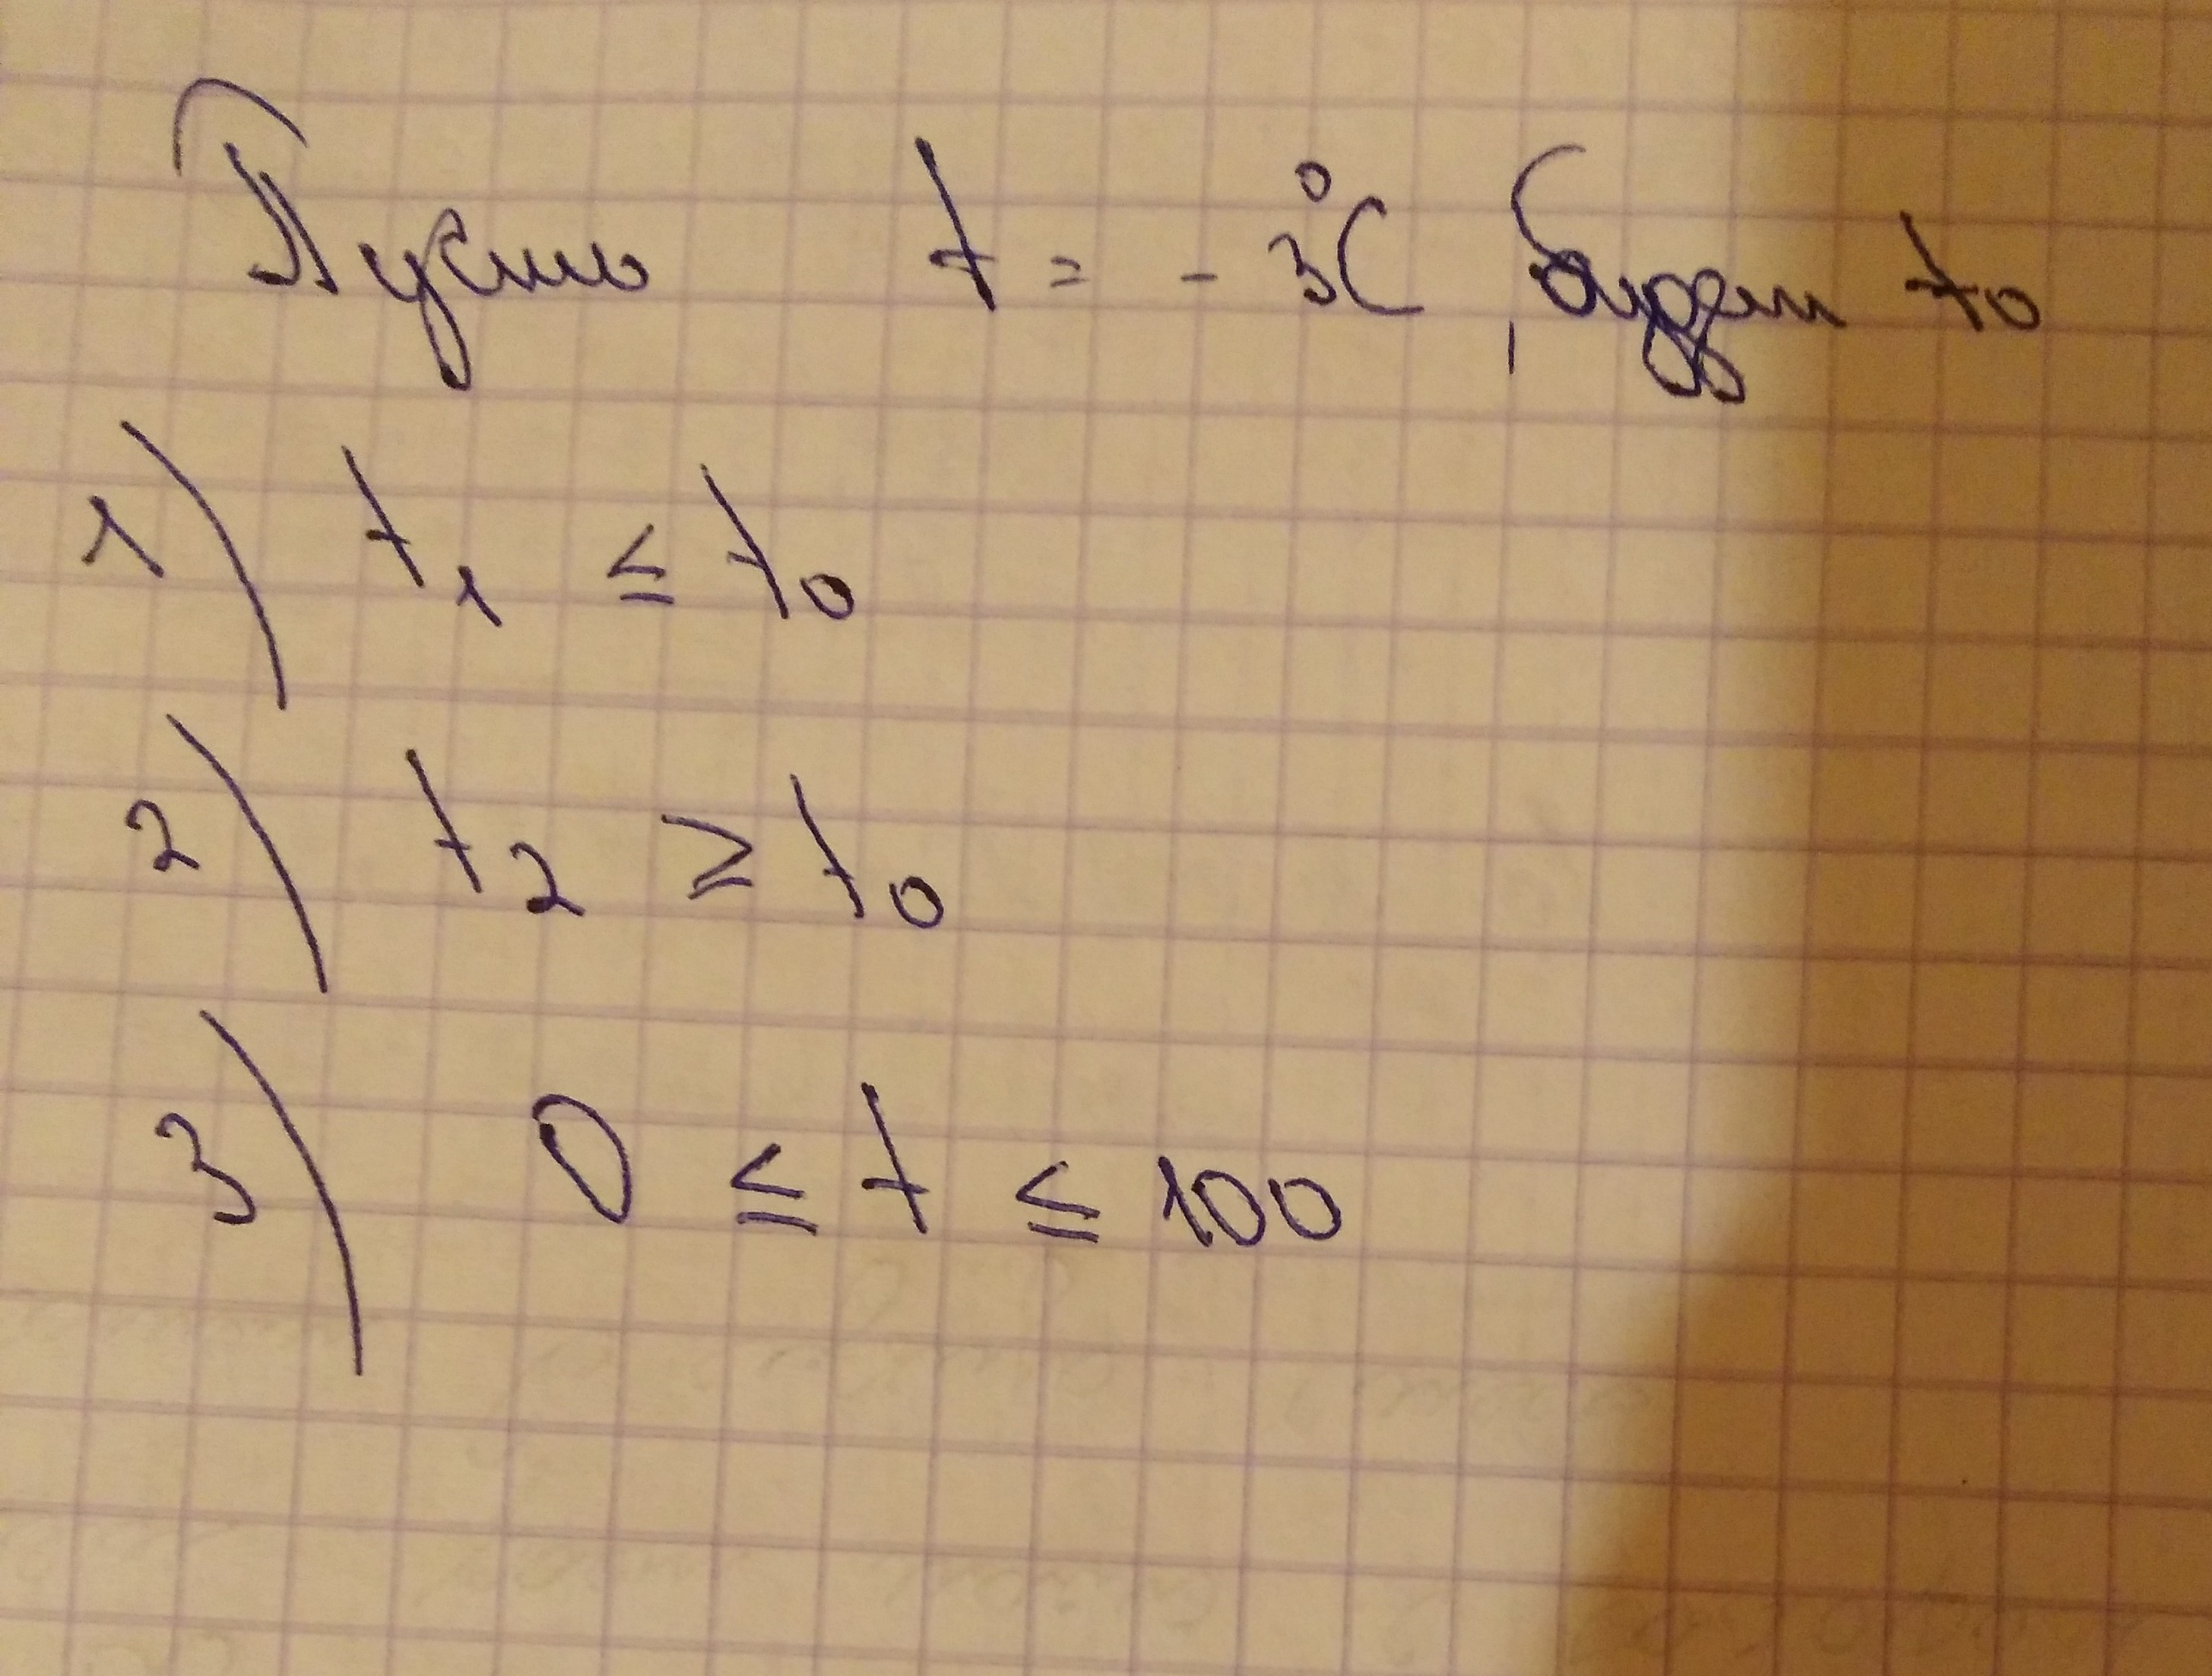 Пусть t = - 3°C, будет t₀
1) t₁ ≤ t₀
2) t₂ ≥ t₀
3) 0 ≤ t ≤ 100